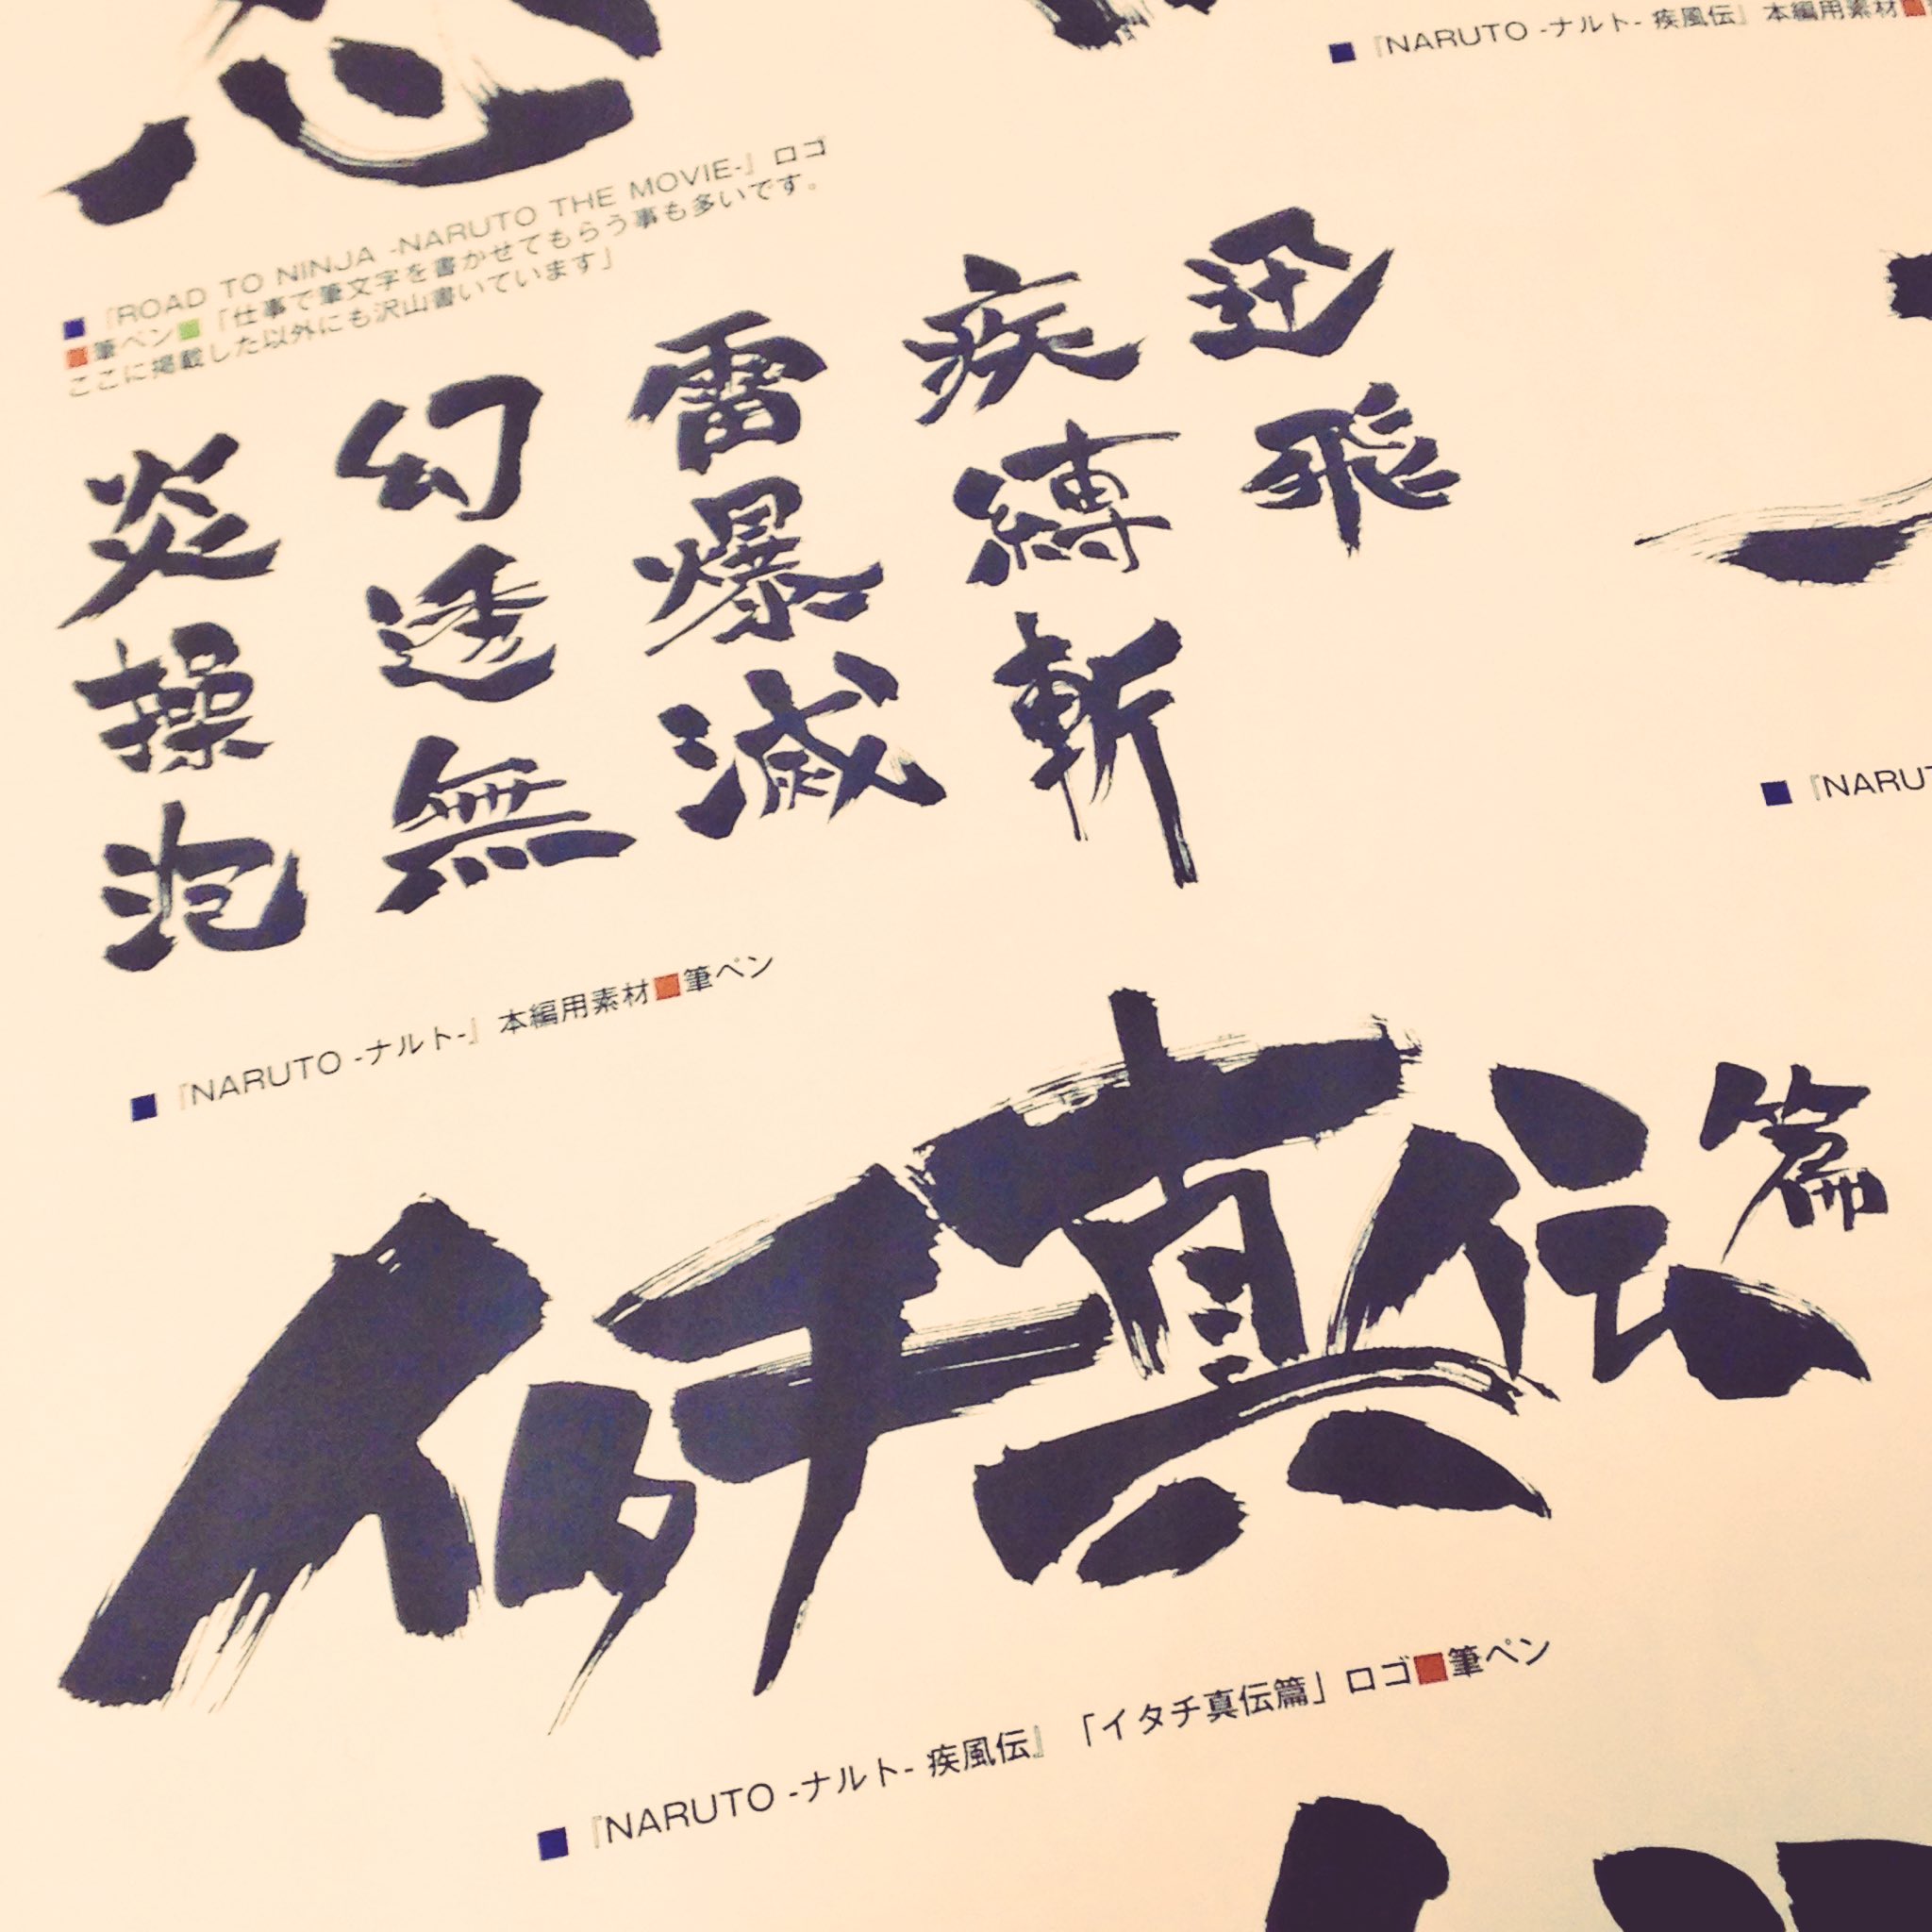 ■『NARUTO -ナルト- 疾風伝』本編用素材■
■『ROAD TO NINJA -NARUTO THE MOVIE-』ロゴ
■筆ペン■「仕事で筆文字を書かせてもらう事も多いです。
ここに掲載した以外にも沢山書いています」
迅飛
疾縛斬
雷爆滅
幻透無
炎操泡
■『NARUTO -ナルト-』本編用素材■筆ペン
■『NARUT
イタチ真伝篇
■『NARUTO -ナルト- 疾風伝』「イタチ真伝篇」ロゴ■筆ペン